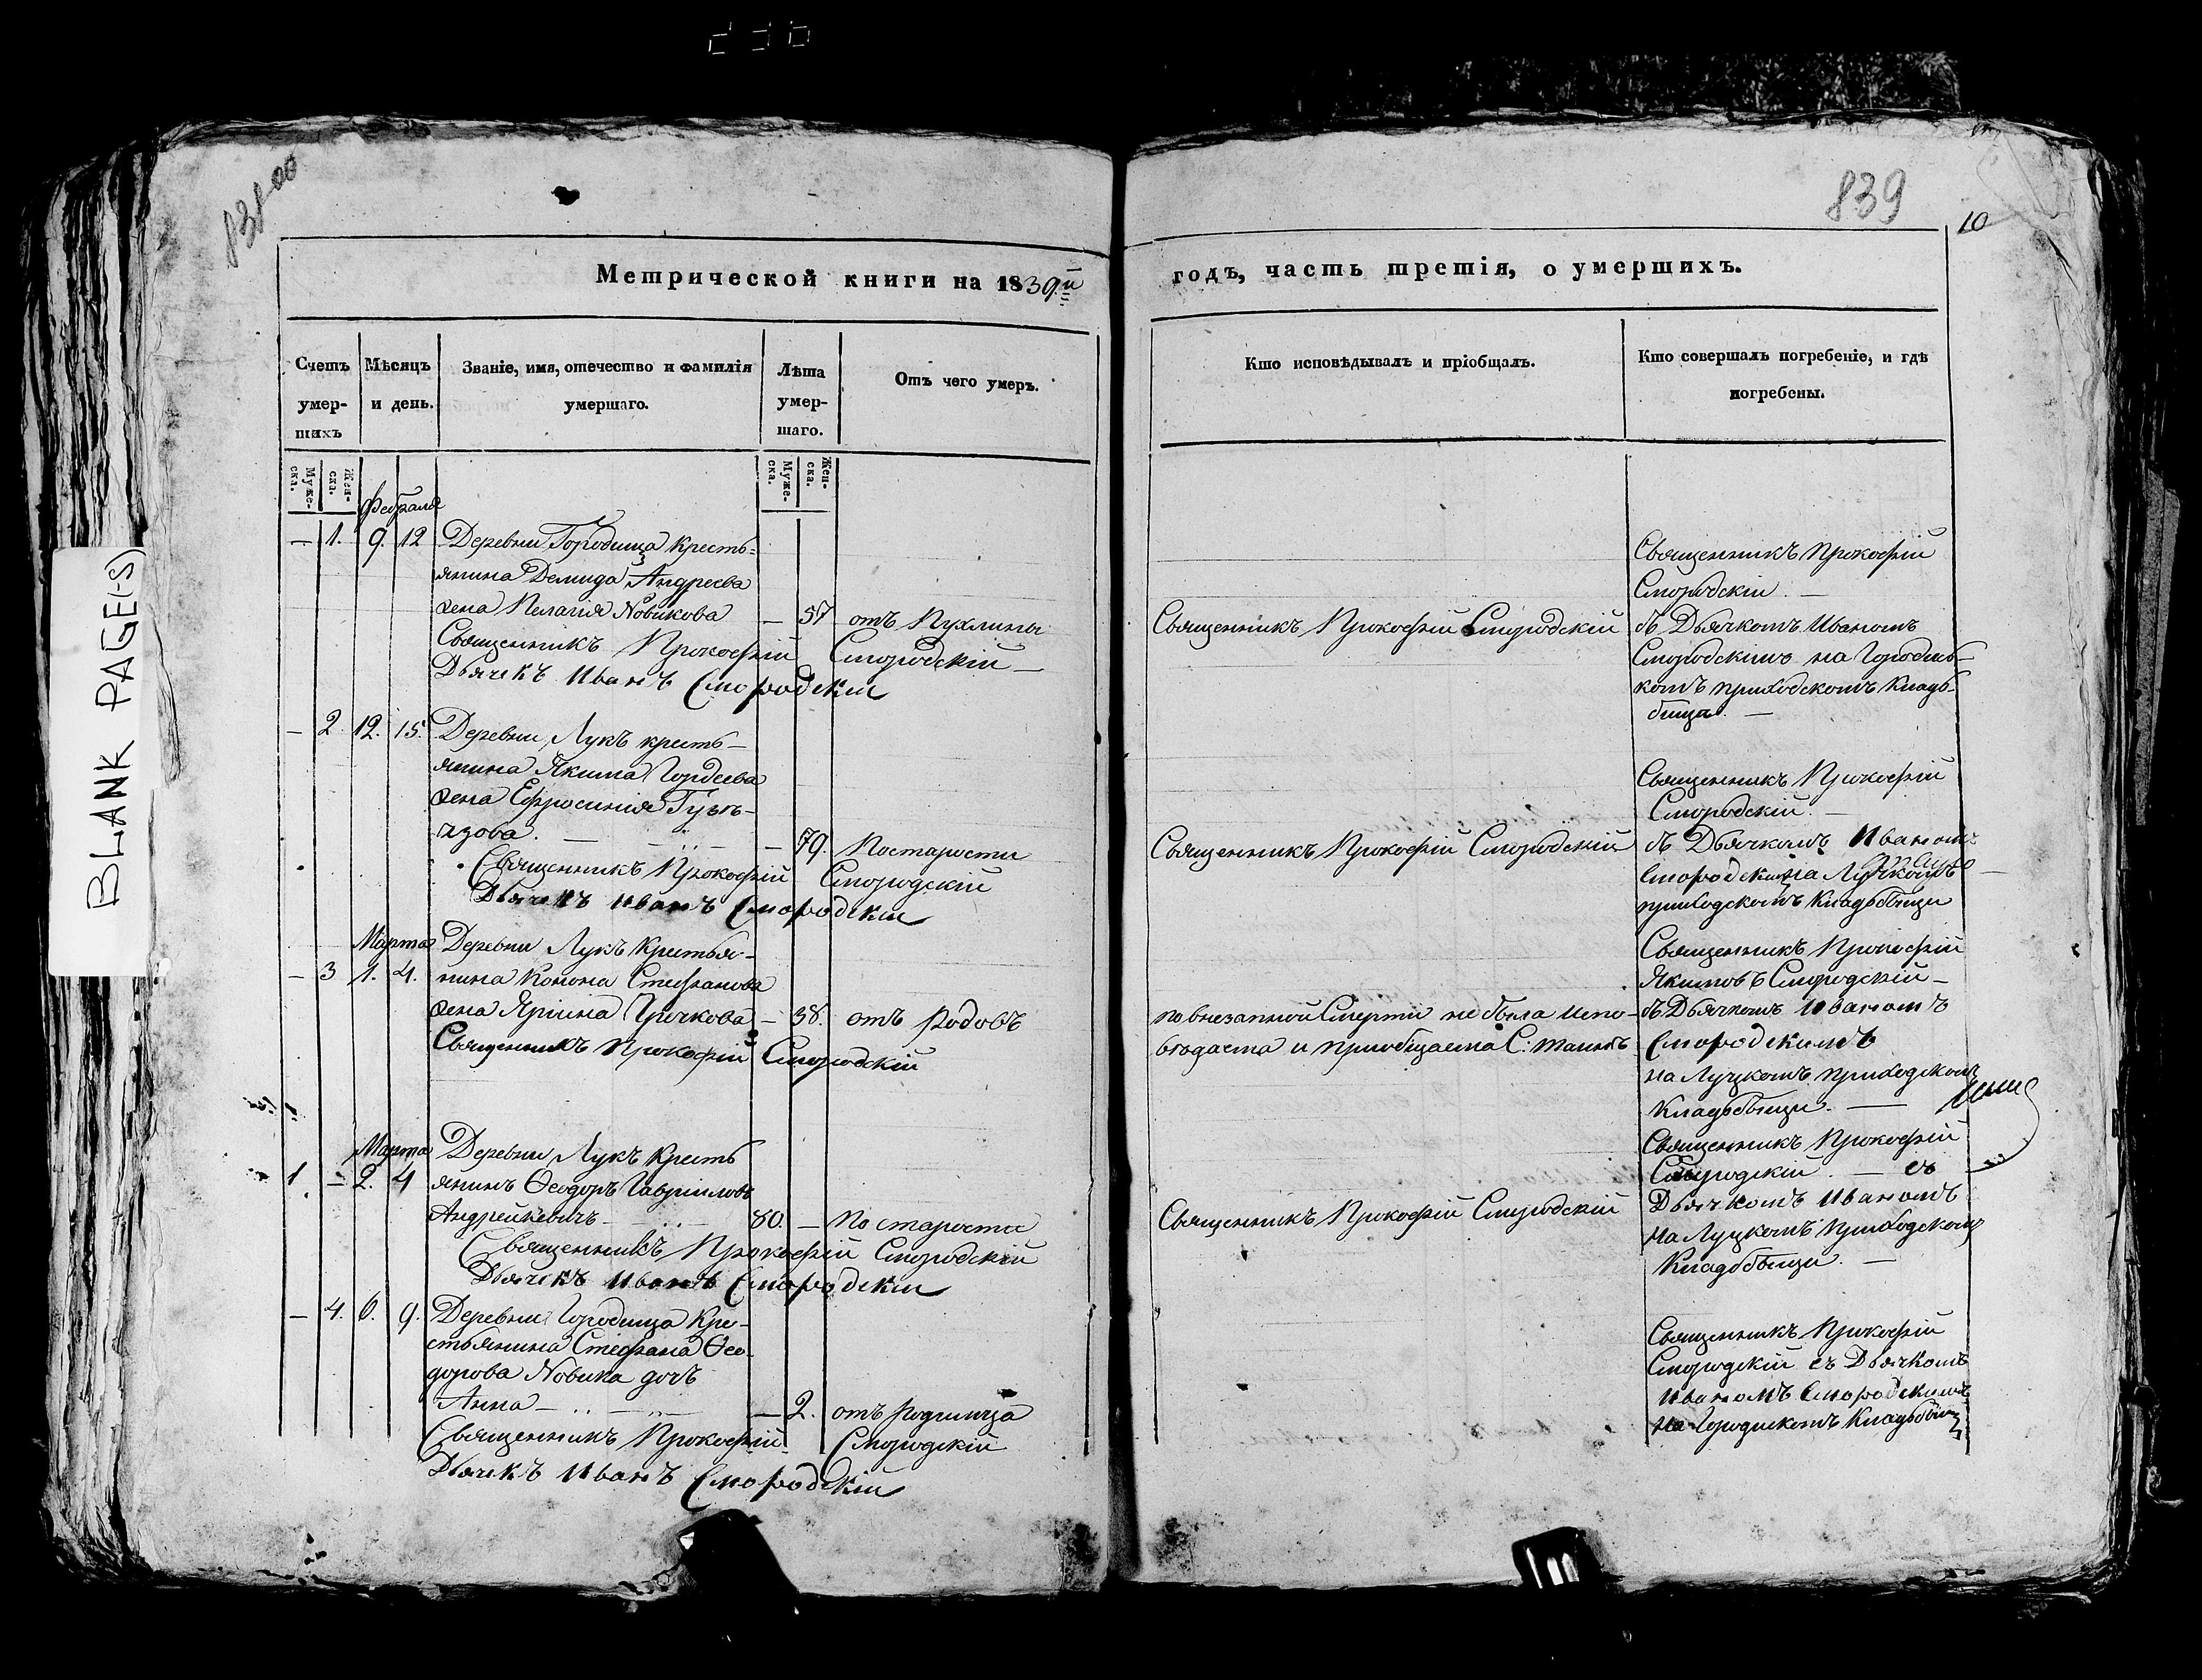 839
10
BLANK PAGE(-S)
Метрической книги на 1839й
годъ, часть третія, о умершихъ.
Счетъ умер-шихъ
Мѣсяцъ и день.
Званіе, имя, отечество и фамилія умершаго.
Лѣта умер-шаго.
Отъ чего умеръ.
Кто исповѣдывалъ и пріобщалъ.
Кто совершалъ погребеніе, и гдѣ погребены.
Муже-ска.
Жен-ска.
Муже-ска.
Жен-ска.
Февраля
— 1. 9. 12 Деревни Городища кресть=
янина Демида Андреева
жена Пелагія Новикова — 57 отъ Пухлины
Священникъ Прокофій Смородскій —
Дьячекъ Иванъ Смородскій
Священникъ Прокофій Смородскій
Священникъ Прокофій
Смородскій. —
съ Дьячкомъ Иваномъ
Смородскимъ на Городис-
комъ приходскомъ Кладъ-
бищѣ. —
— 2. 12. 15. Деревни Лукъ кресть—
янина Якима Гордеева
жена Ефросинія
— 79. По старости
Священникъ Прокофій Смородскій
Дьячекъ Иванъ Смородскій
Священникъ Прокофій Смородскій
Священникъ Прокофій
Смородскій. —
съ Дьячкомъ Иваномъ
Смородским на Луцкомъ
приходскомъ Кладбьищи
Марта
Деревни Лукъ Крестья-
— 3 1. 4. нина Конона Стефанова
жена Ярина Гричкова — 38. отъ Родовъ
Священникъ Прокофій Смородскій
по внезапной Смерти не была испо-
вѣдаема и приобщаема С: таинъ
Священникъ Прокофій
Якимовъ Смородскій —
съ Дьячкомъ Иваномъ
Смородскимъ
на Луцкомъ приходском
Кладбьищи. —
Марта
Деревни Лукъ Кресть
1 — 2. 4 янинъ Ѳеодоръ Гавриловъ
Андрейкевичъ — 80. — По старости
Священникъ Прокофій Смородскій
Дьячекъ Иванъ Смородскій
Священникъ Прокофій Смородскій
Священникъ Прокофій
Смородскій — съ
Дьячкомъ Иваномъ
на Луцкомъ Приходском
Кладбьищи. —
— 4. 6. 9. Деревни Городища Кре-
стьянина Стефана Ѳео-
дорова Новика дочъ
Анна — 2. отъ Родимца
Священникъ Прокофій Смородскій
Дьячекъ Иванъ Смородскій
Священникъ Прокофій
Смородскій съ Дьячкомъ
Иваномъ Смородскимъ
на Городискомъ Кладбьищ